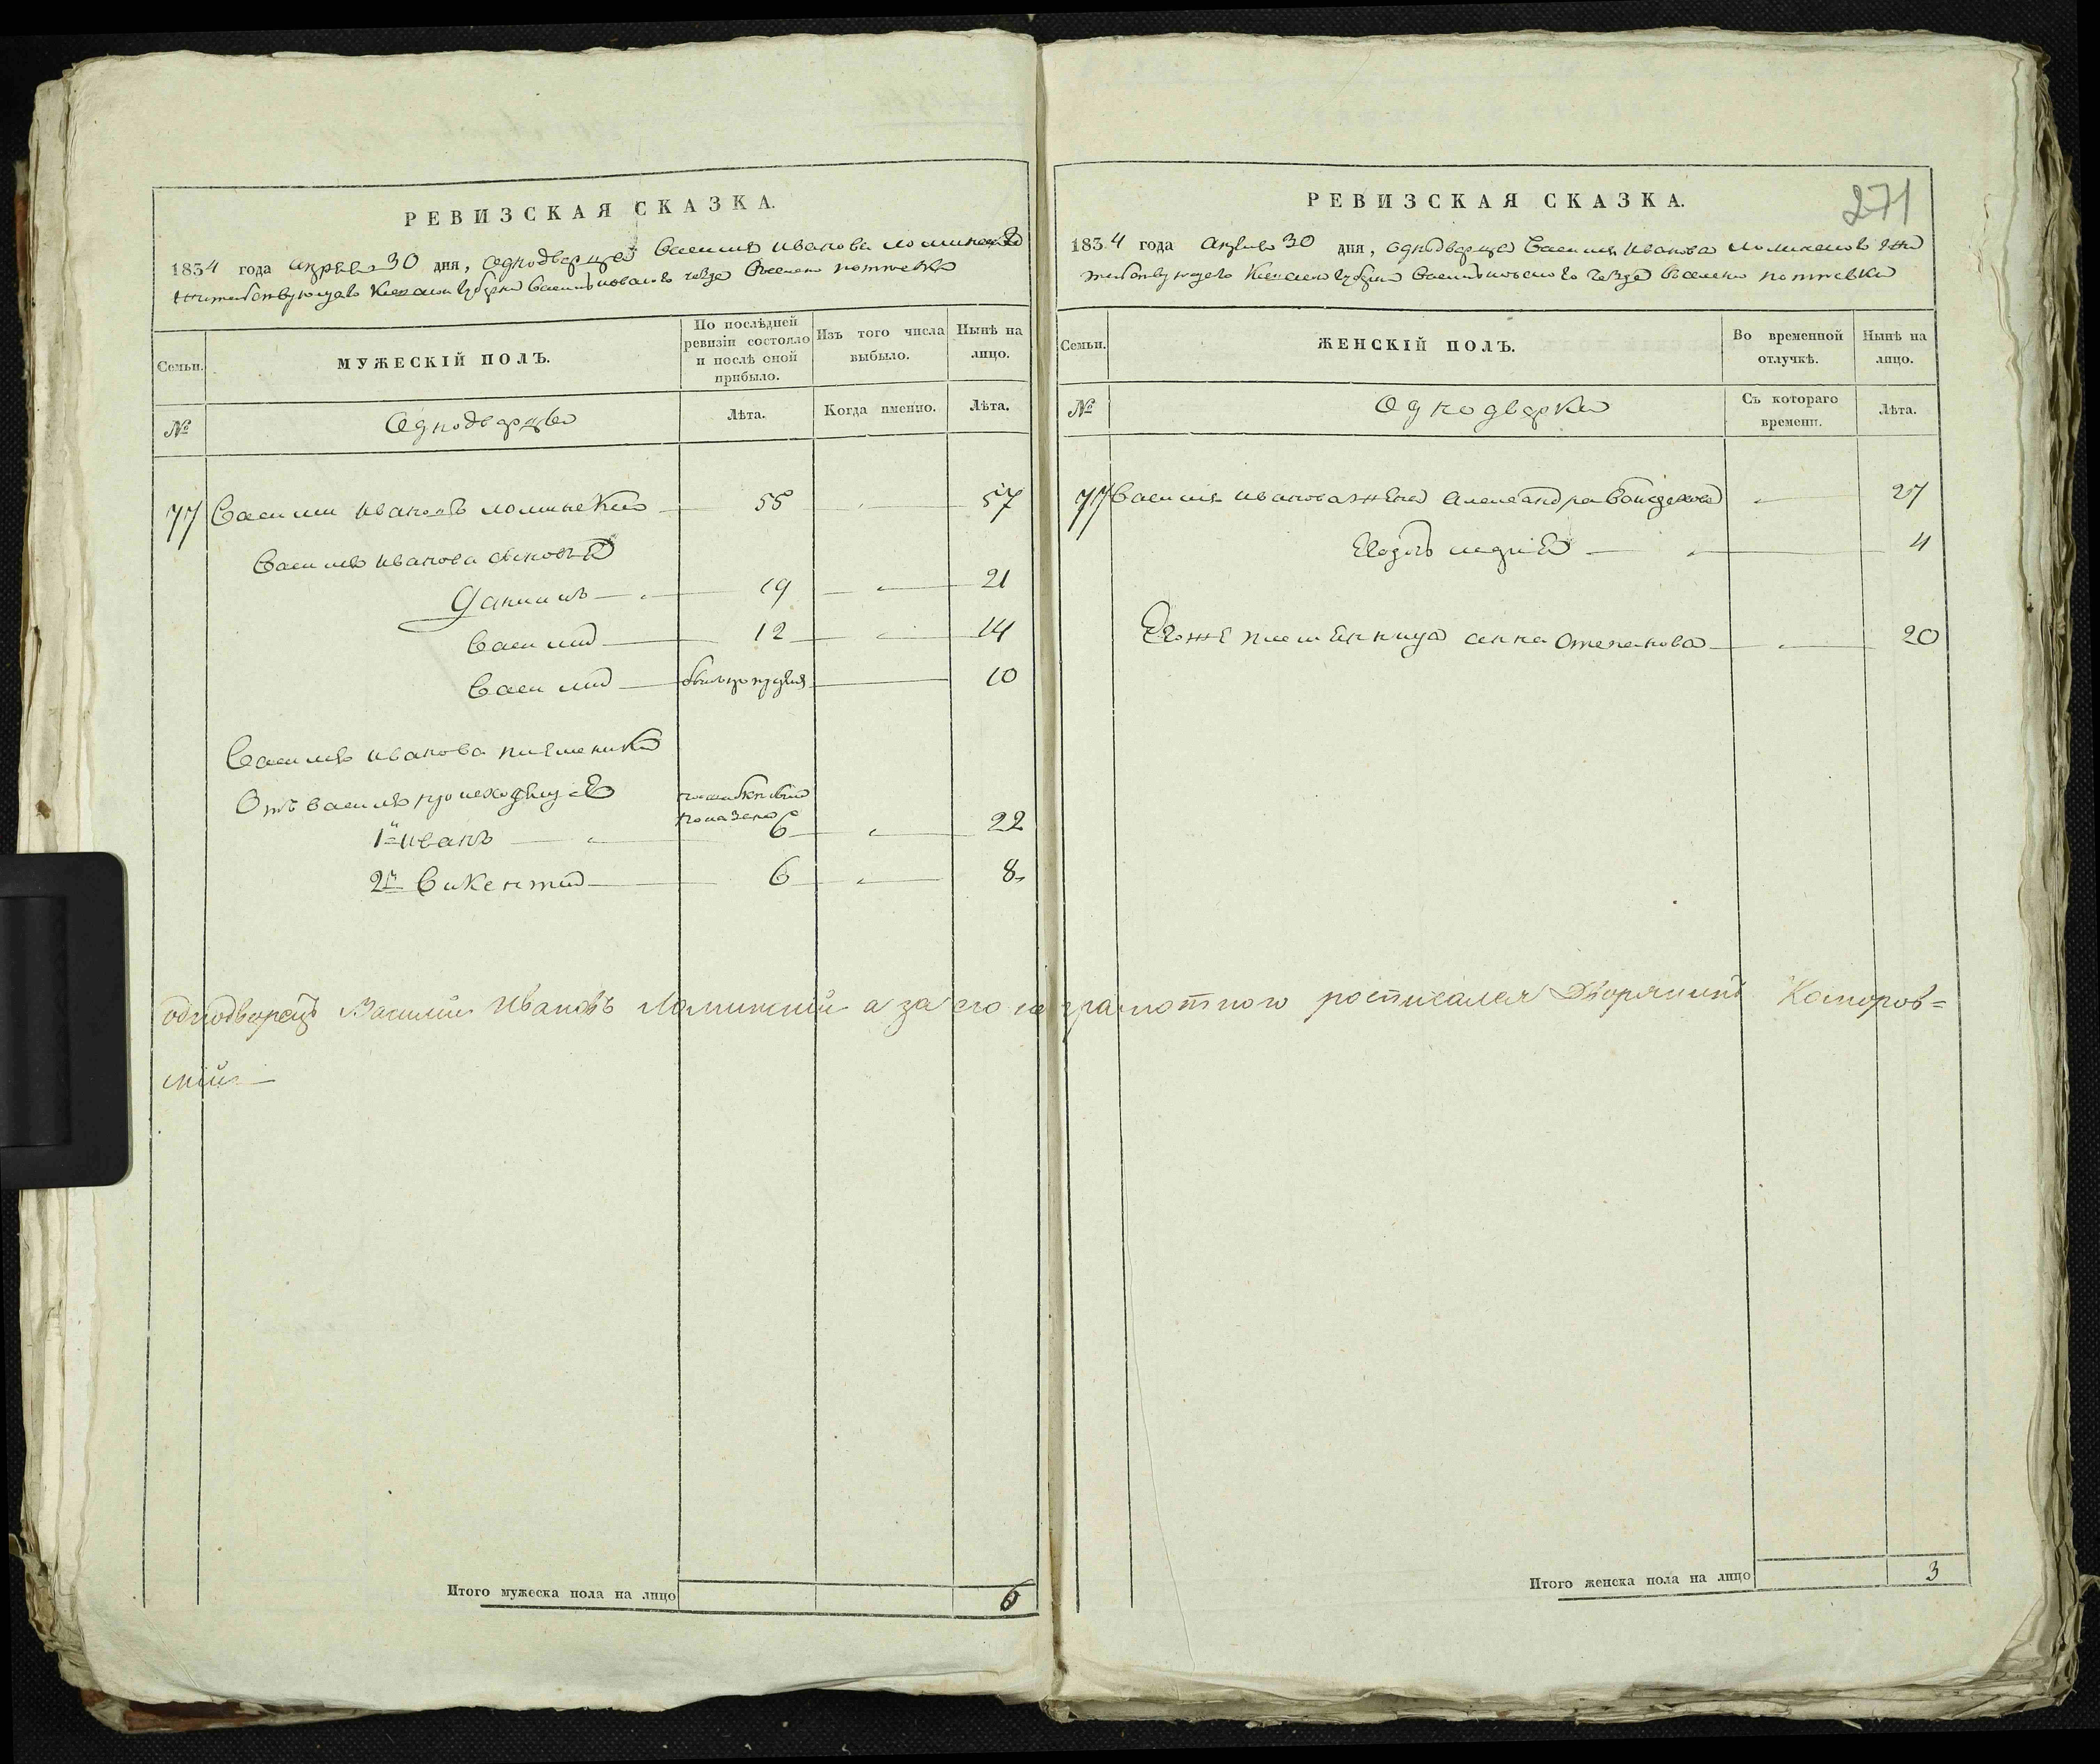 РЕВИЗСКАЯ СКАЗКА.
1834 года апреля 30 дня, однодворца Василия Иванова
жительствующаго Киевской губернии Васильковского уезда
Семьи.
МУЖЕСКІЙ ПОЛЪ.
По послѣдней ревизіи состояло и послѣ оной прибыло.
Изъ того числа выбыло.
Нынѣ на лицо.
№
Однодворцы
Лѣта.
Когда именно.
Лѣта.
77 Василий Ивановъ Ломинский 55 57
Василия Иванова сыновья
Даниилъ 19 21
Василий 12 14
Василий 10
Василия Иванова племеники
Отъ Василия
1й Иванъ 6 22
2й Викентий 6 8
однодворецъ Василий Ивановъ Ломинский а за его неграмотного росписался Дворянинъ Коморов=
ский
Итого мужеска пола на лицо 6
РЕВИЗСКАЯ СКАЗКА.
271
1834 года апреля 30 дня, однодворца Василия Иванова
жительствующего Киевской губернии Васильковского уезда
Семьи.
ЖЕНСКІЙ ПОЛЪ.
Во временной отлучкѣ.
Нынѣ на лицо.
№
Однодворки
Съ котораго времени.
Лѣта.
77 Василия Иванова жена Александра 27
4
Егоже племянница Анна Степанова 20
Итого женска пола на лицо 3